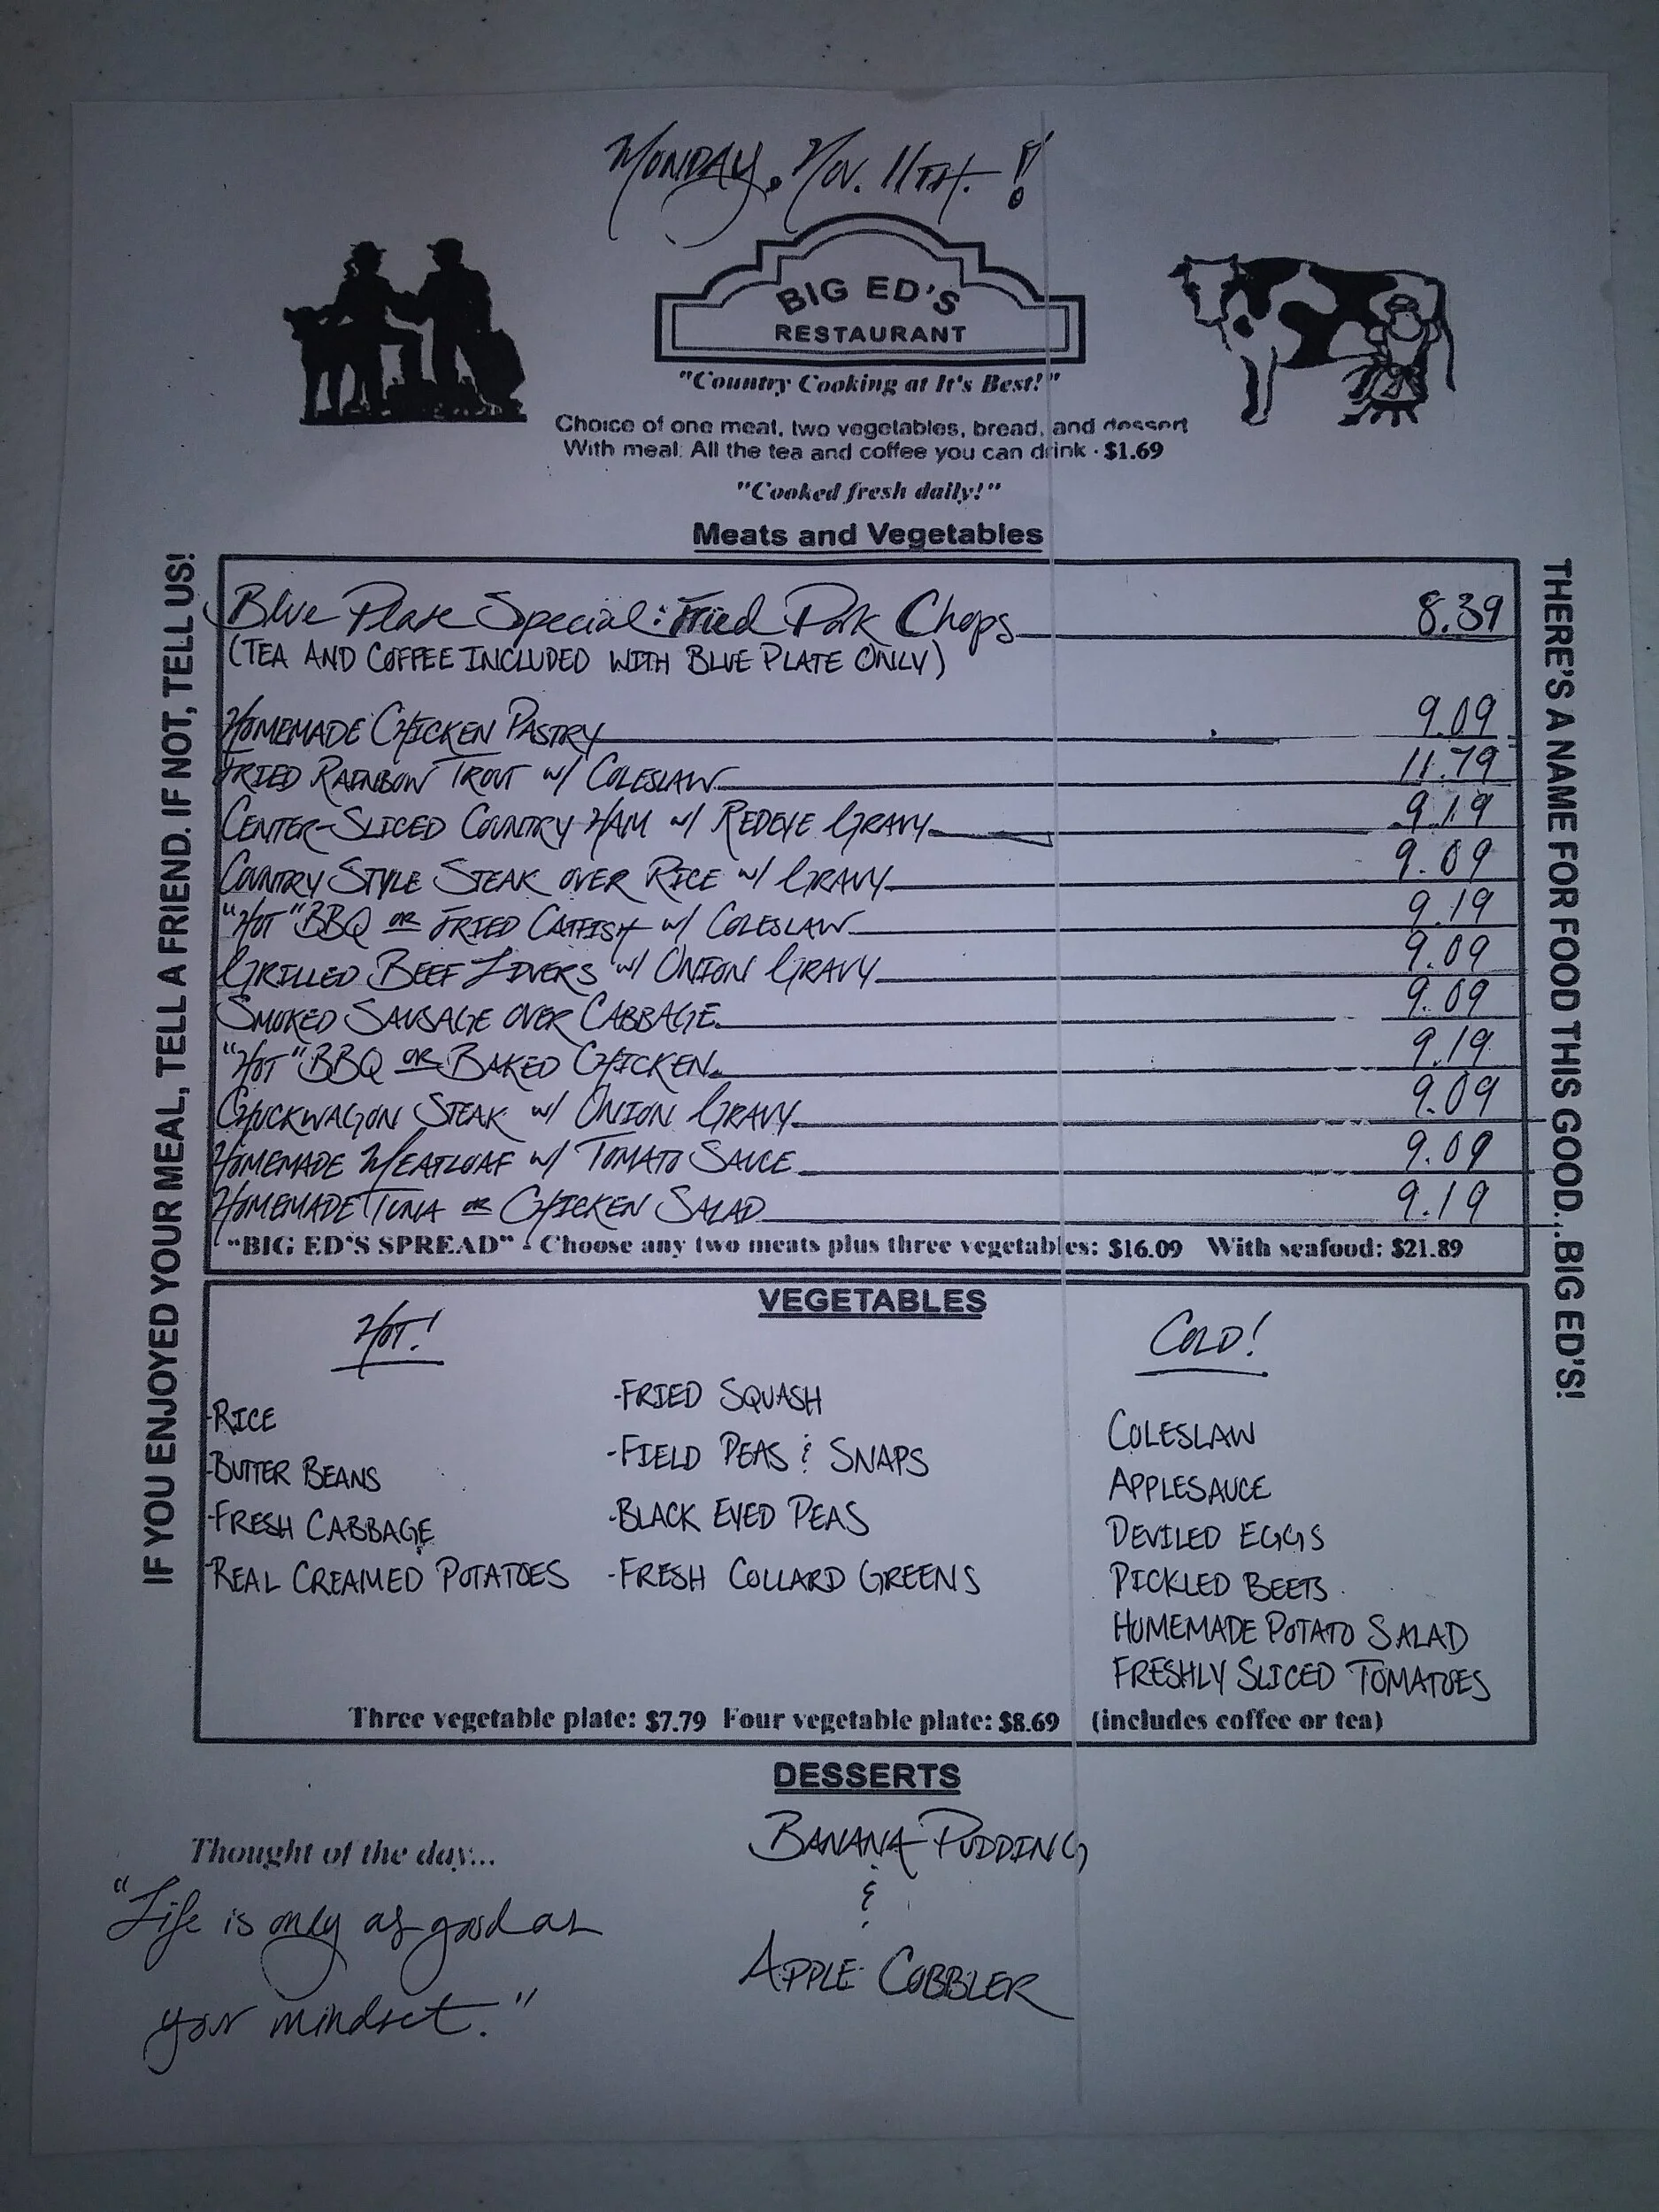 MONDAY, NOV. 11TH. !
BIG ED'S
RESTAURANT
"Country Cooking at It's Best!"
Choice of one meat, two vegetables, bread, and dessert
With meal: All the tea and coffee you can drink - $1.69
"Cooked fresh daily!"
Meats and Vegetables
IF YOU ENJOYED YOUR MEAL, TELL A FRIEND. IF NOT, TELL US!
Blue Plate Special: Fried Pork Chops 8.39
(TEA AND COFFEE INCLUDED WITH BLUE PLATE ONLY)
HOMEMADE CHICKEN PASTRY 9.09
FRIED RAINBOW TROUT W/ COLESLAW 11.79
CENTER-SLICED COUNTRY HAM W/ REDEYE GRAVY 9.19
COUNTRY STYLE STEAK OVER RICE W/ GRAVY 9.09
"HOT" BBQ OR FRIED CATFISH W/ COLESLAW 9.19
GRILLED BEEF LIVERS W/ ONION GRAVY 9.09
SMOKED SAUSAGE OVER CABBAGE 9.09
"HOT" BBQ OR BAKED CHICKEN 9.19
CHUCKWAGON STEAK W/ ONION GRAVY 9.09
HOMEMADE MEATLOAF W/ TOMATO SAUCE 9.09
HOMEMADE TUNA OR CHICKEN SALAD 9.19
"BIG ED'S SPREAD" - Choose any two meats plus three vegetables: $16.09 With seafood: $21.89
THERE'S A NAME FOR FOOD THIS GOOD...BIG ED'S!
VEGETABLES
HOT!
-RICE
-BUTTER BEANS
-FRESH CABBAGE
-REAL CREAMED POTATOES
-FRIED SQUASH
-FIELD PEAS & SNAPS
-BLACK EYED PEAS
-FRESH COLLARD GREENS
COLD!
COLESLAW
APPLESAUCE
DEVILED EGGS
PICKLED BEETS
HOMEMADE POTATO SALAD
FRESHLY SLICED TOMATOES
Three vegetable plate: $7.79 Four vegetable plate: $8.69 (includes coffee or tea)
DESSERTS
BANANA PUDDING
&
APPLE COBBLER
Thought of the day...
"Life is only as good as
your mindset."